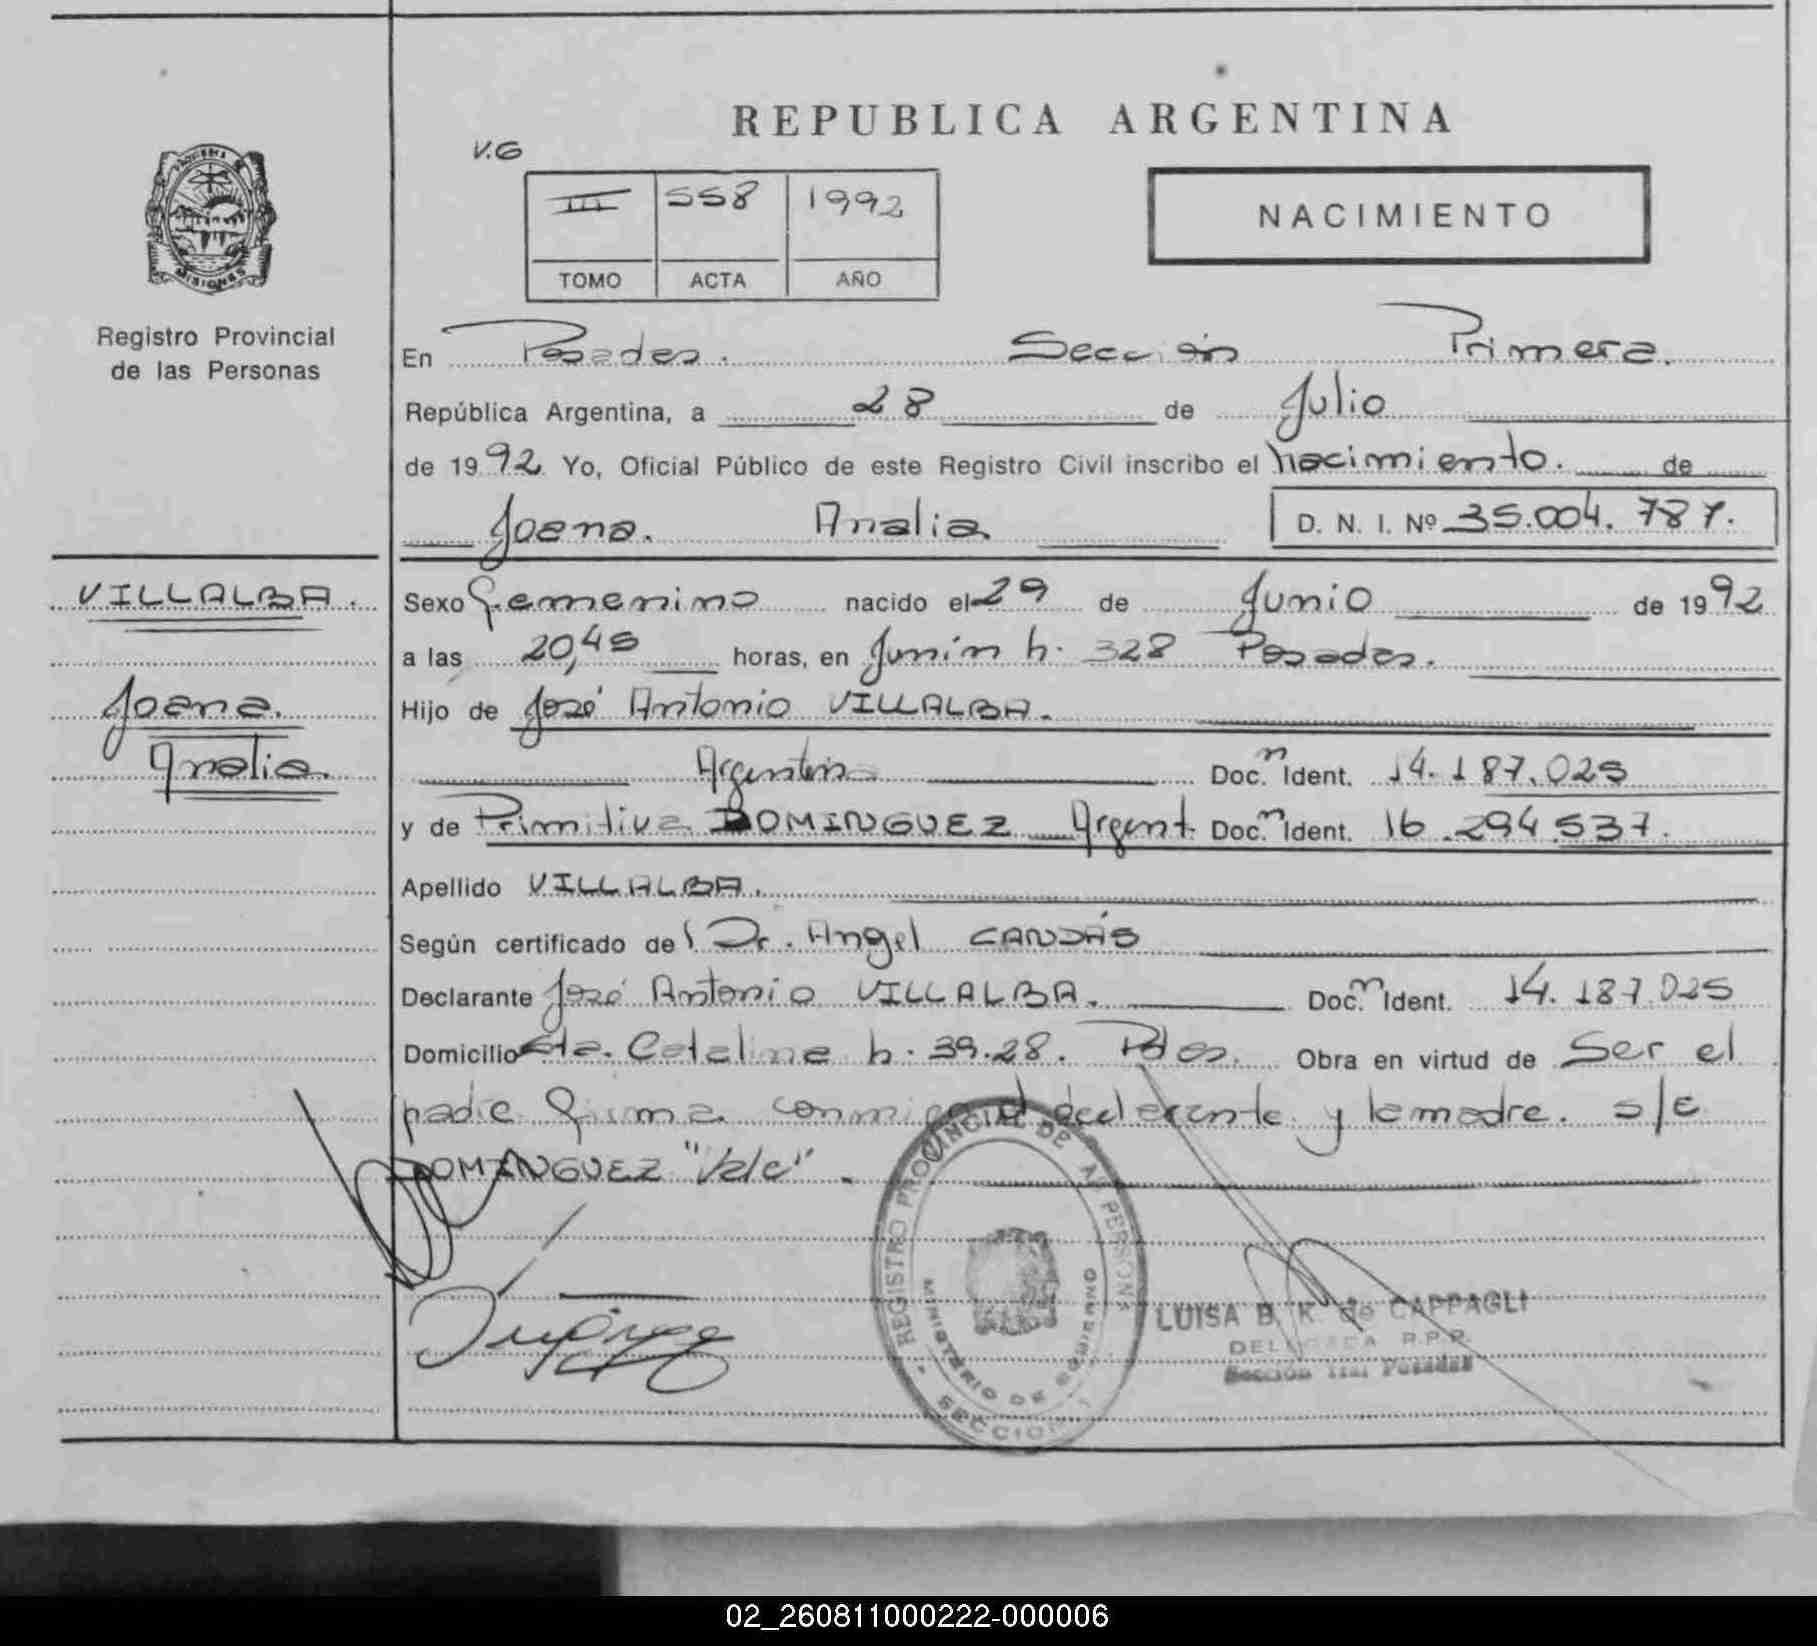 REPUBLICA ARGENTINA
V.G
III 558 1992
TOMO ACTA AÑO
NACIMIENTO
MISIONES
Registro Provincial
de las Personas
En Posadas. Sección Primera.
República Argentina, a 28 de Julio
de 1992 Yo, Oficial Público de este Registro Civil inscribo el nacimiento. de
Joana. Analia D. N. I. Nº 35.004.787.
VILLALBA.
Joana.
Analia.
Sexo Femenino nacido el 29 de Junio de 1992
a las 20,45 horas, en Junín n. 328 Posadas.
Hijo de José Antonio VILLALBA.
Argentino Doc.n Ident. 14.187.025
y de Primitiva DOMINGUEZ Argent. Doc.n Ident. 16.294.537.
Apellido VILLALBA.
Según certificado del Dr. Angel CANDÁS
Declarante José Antonio VILLALBA. Doc.n Ident. 14.187.025
Domicilio Sta. Catalina n. 39.28. Pdas. Obra en virtud de Ser el
padre firma conmigo el declarante y la madre. s/e
DOMINGUEZ "Vale".
REGISTRO PROVINCIAL DE LAS PERSONAS
MINISTERIO DE GOBIERNO
SECCION
LUISA B. K. de CAPPAGLI
DELEGADA R.P.P.
Sección 1ra. Posadas
02_260811000222-000006